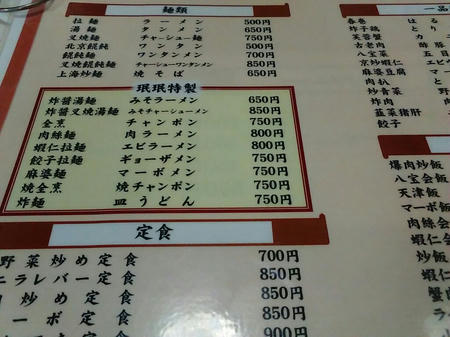 麺類
拉麺 ラーメン 500円
湯麺 タンメン 650円
叉焼麺 チャーシュー麺 750円
北京餛飩 ワンタン 500円
餛飩麺 ワンタンメン 700円
叉焼餛飩麺 チャーシューワンタンメン
上海炒麺 焼そば 650円
珉珉特製
炸醤湯麺 みそラーメン 650円
炸醤叉焼湯麺 みそチャーシューメン 850円
全烹 チャンポン 750円
肉絲麺 肉ラーメン 800円
蝦仁拉麺 エビラーメン 800円
餃子拉麺 ギョーザメン 750円
麻婆麺 マーボーメン 750円
焼全烹 焼チャンポン 750円
炸麺 皿うどん 750円
定食
野菜炒め定食 700円
ニラレバー定食 850円
炒め定食 850円
ーボ定食 850円
定食 900円
一品
春巻 はる
炸子鶏 とり
芙蓉蟹 カ
古老肉 酢豚
八宝菜 五目
京炒蝦仁 エビ
麻婆豆腐 マ
肉扒
炒青菜
炸肉
韮菜猪肝
餃子
爆肉炒飯
八宝会飯
天津飯
マーボ飯
肉絲会飯
蝦仁会
蝦仁
蟹肉